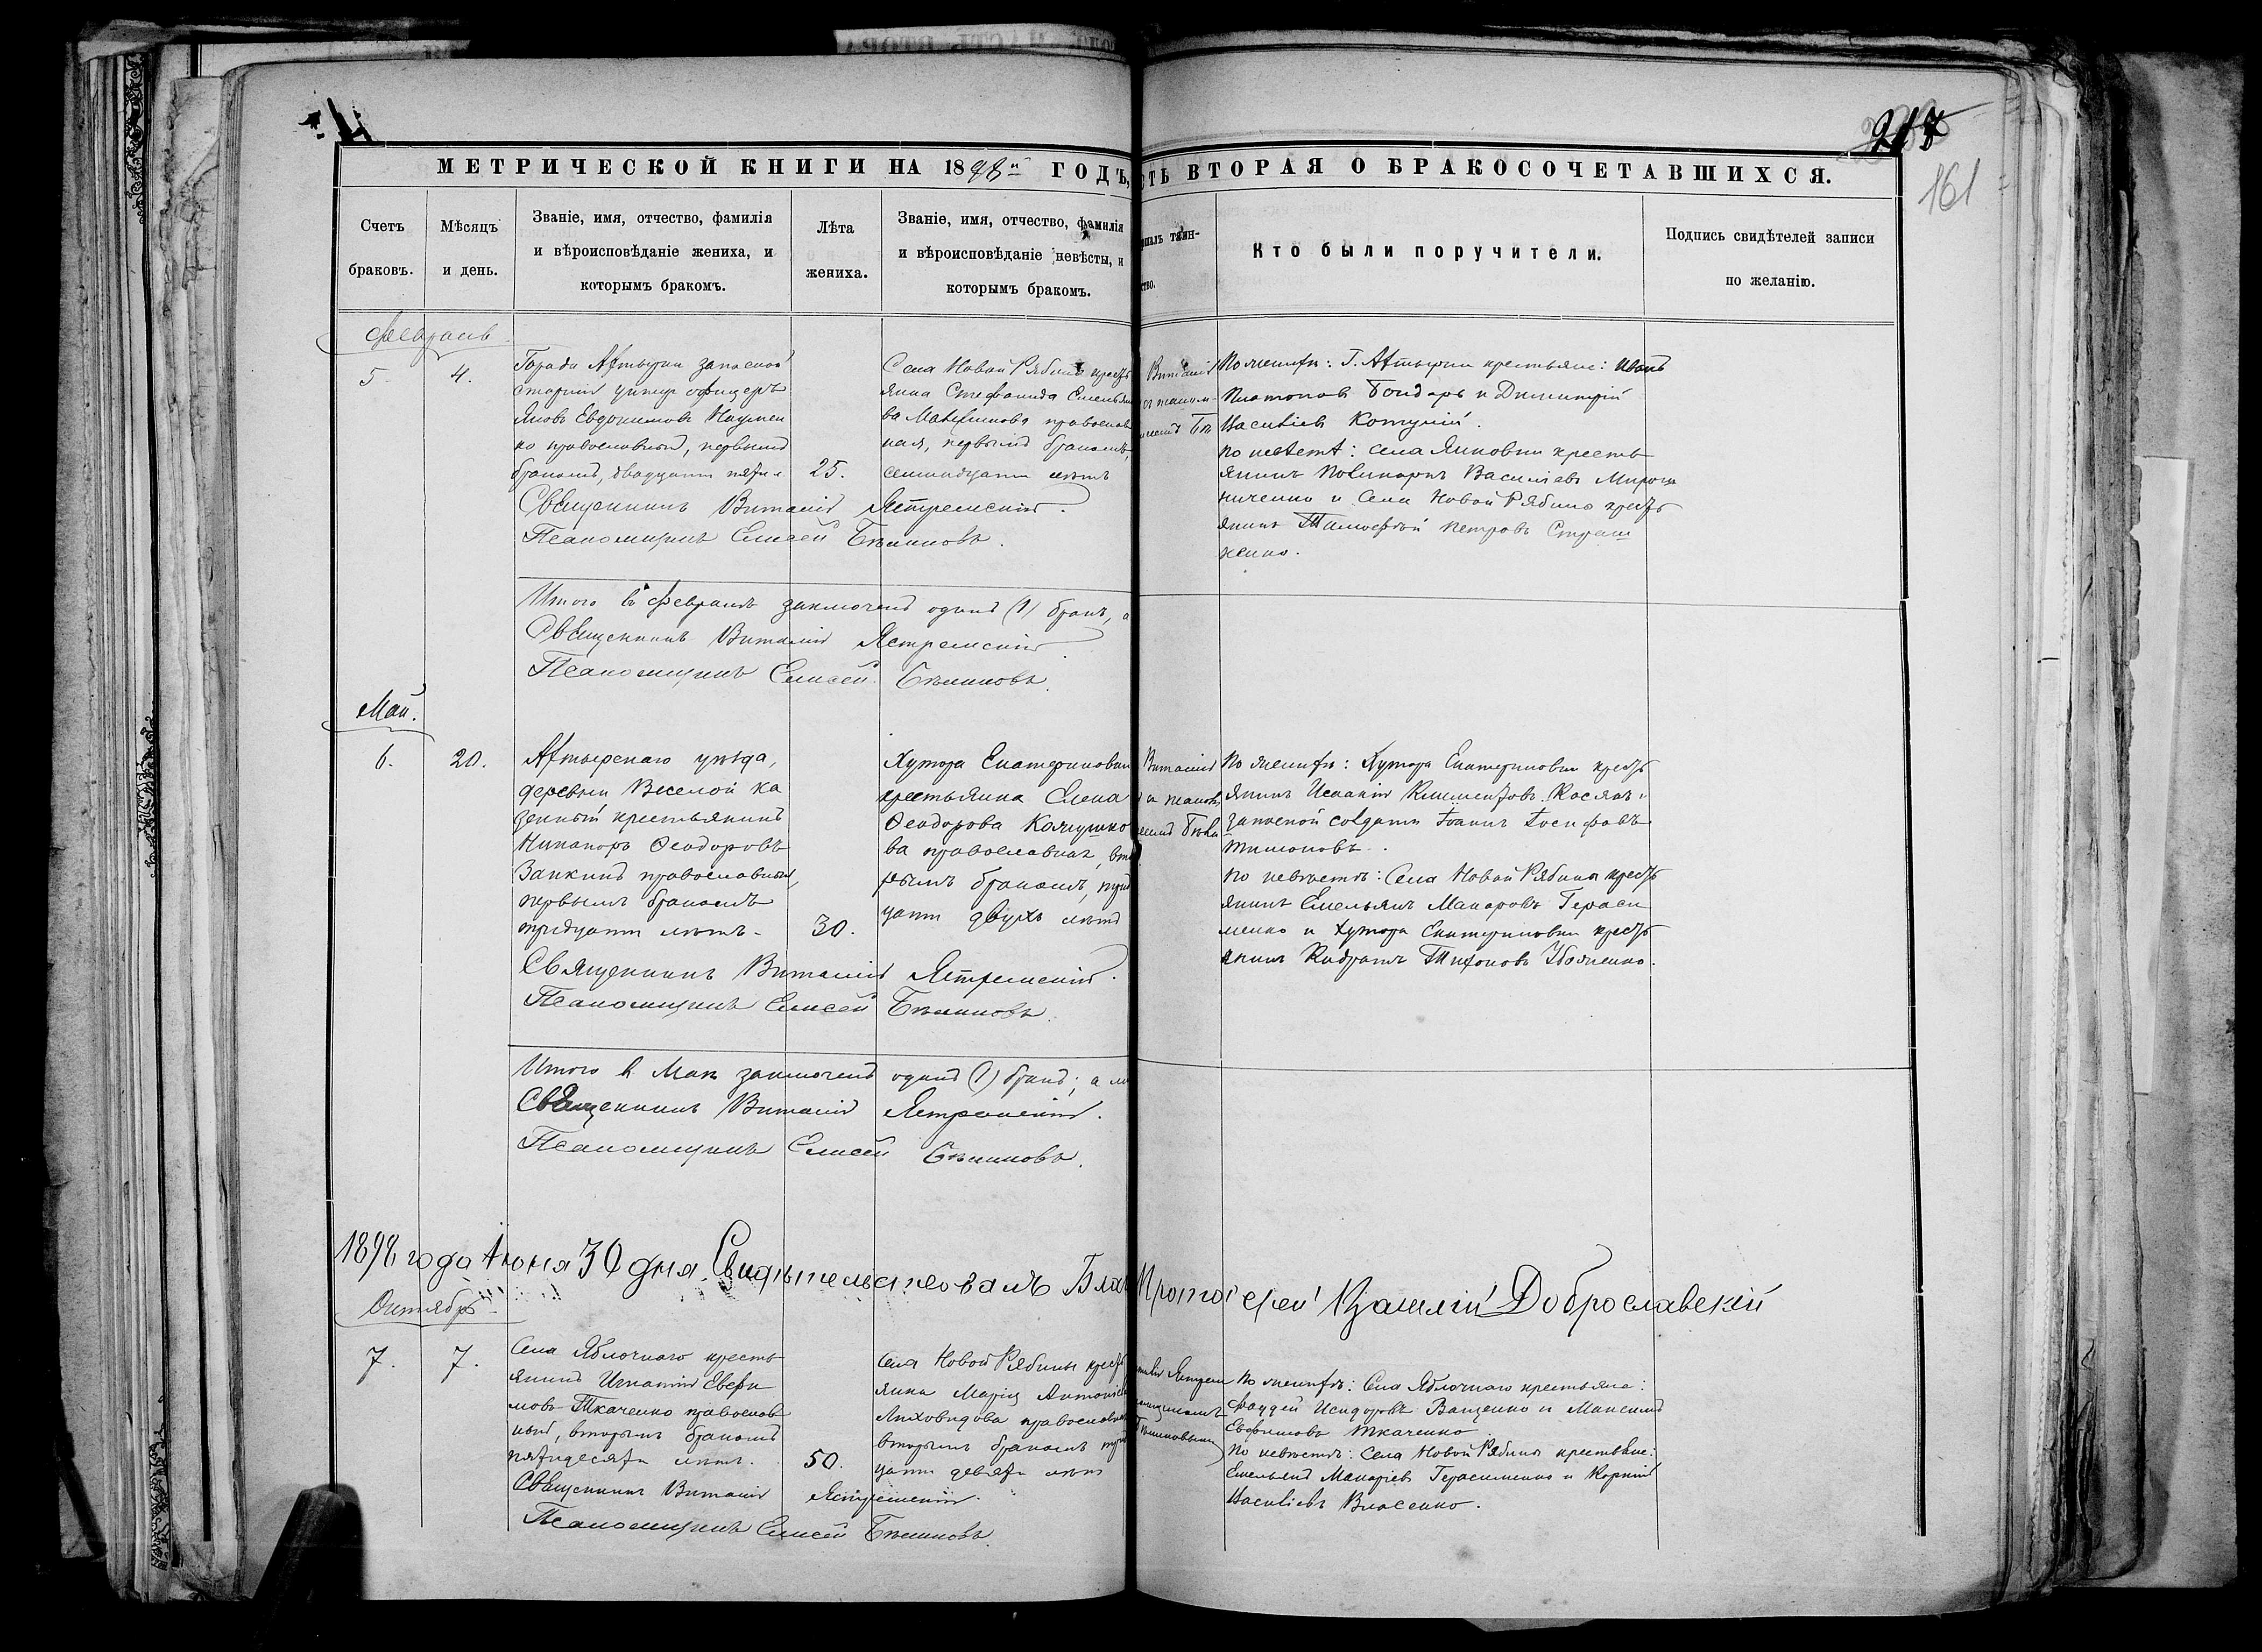 217
161
МЕТРИЧЕСКОЙ КНИГИ НА 1898й ГОДЪ,
СТЬ ВТОРАЯ О БРАКОСОЧЕТАВШИХСЯ.
Счетъ браковъ.
Мѣсяцъ и день.
Званіе, имя, отчество, фамилія
и вѣроисповѣданіе жениха, и
которымъ бракомъ.
Лѣта
жениха.
Званіе, имя, отчество, фамилія
и вѣроисповѣданіе невѣсты, и
которымъ бракомъ.
Кто были поручители.
Подпись свидѣтелей записи
по желанію.
Февраль
5.
4.
Города Ахтырки запасной
старшій унтеръ офицеръ
Яковъ Евдокимовъ Наумен
ко православный, первымъ
бракомъ, двадцати пяти л
25.
Села Новой Рябины кресть
янка Стефанида Емельяно
ва православ
ная, первымъ бракомъ,
семнадцати лѣтъ
Виталій
По женихѣ: Г. Ахтырки крестьяне: Иванъ
Платоновъ Бондарь и Димитрій
Василіевъ
по невѣстѣ: села Янковки кресть
янинъ Поликарпъ Василіевъ Мирош
ниченко и Села Новой Рябины кресть
янинъ Тимофей Петровъ
Священникъ Виталій Ястремскій.
Псаломщикъ Елисей Бѣликовъ.
Итого въ Февралѣ заключенъ одинъ (1) бракъ, а
Священникъ Виталій Ястремскій
Псаломщикъ Елисей Бѣликовъ.
Май.
6.
20.
Ахтырскаго уѣзда,
деревни Веселой ка
зенный крестьянинъ
Никаноръ Ѳеодоровъ
Заикинъ православный,
первымъ бракомъ
тридцати лѣтъ.
30.
Хутора Екатериновки
крестьянка Елена
Ѳеодорова
ва православная, вто
рымъ бракомъ, трид
цати двухъ лѣтъ
Виталій
По женихѣ: Хутора Екатериновки кресть
янинъ Исаакій Климентовъ Касьян
запасной солдатъ Іоаннъ Іосифовъ
Тимоновъ.
По невѣстѣ: Села Новой Рябины кресть
янинъ Емельянъ Макаровъ Гераси
менко и Хутора Екатериновки кресть
янинъ Кодратъ Тихоновъ
Священникъ Виталій Ястремскій.
Псаломщикъ Елисей Бѣликовъ.
Итого въ Маѣ заключенъ одинъ (1) бракъ; а
Священникъ Виталій Ястремскій.
Псаломщикъ Елисей Бѣликовъ.
1898 года Іюня 30 дня Свидѣтельствовалъ Бла Протоіерей Василій Доброславскій
Октябрь
7.
7.
Села Яблочнаго кресть
янинъ Игнатій Евфи
мовъ Ткаченко православ
ный, вторымъ бракомъ
пятидесяти лѣтъ.
50.
Села Новой Рябины кресть
янка Марія Антоніева
Лиховидова православная
вторымъ бракомъ трид
цати девяти лѣтъ
По женихѣ: Села Яблочнаго крестьяне:
Фаддей Исидоровъ Ващенко и Максимъ
Евфимовъ Ткаченко
По невѣстѣ: Села Новой Рябины крестьяне:
Емельянъ Макаріевъ Герасименко и Корнилій
Василіевъ Власенко.
Священникъ Виталій Ястремскій.
Псаломщикъ Елисей Бѣликовъ.